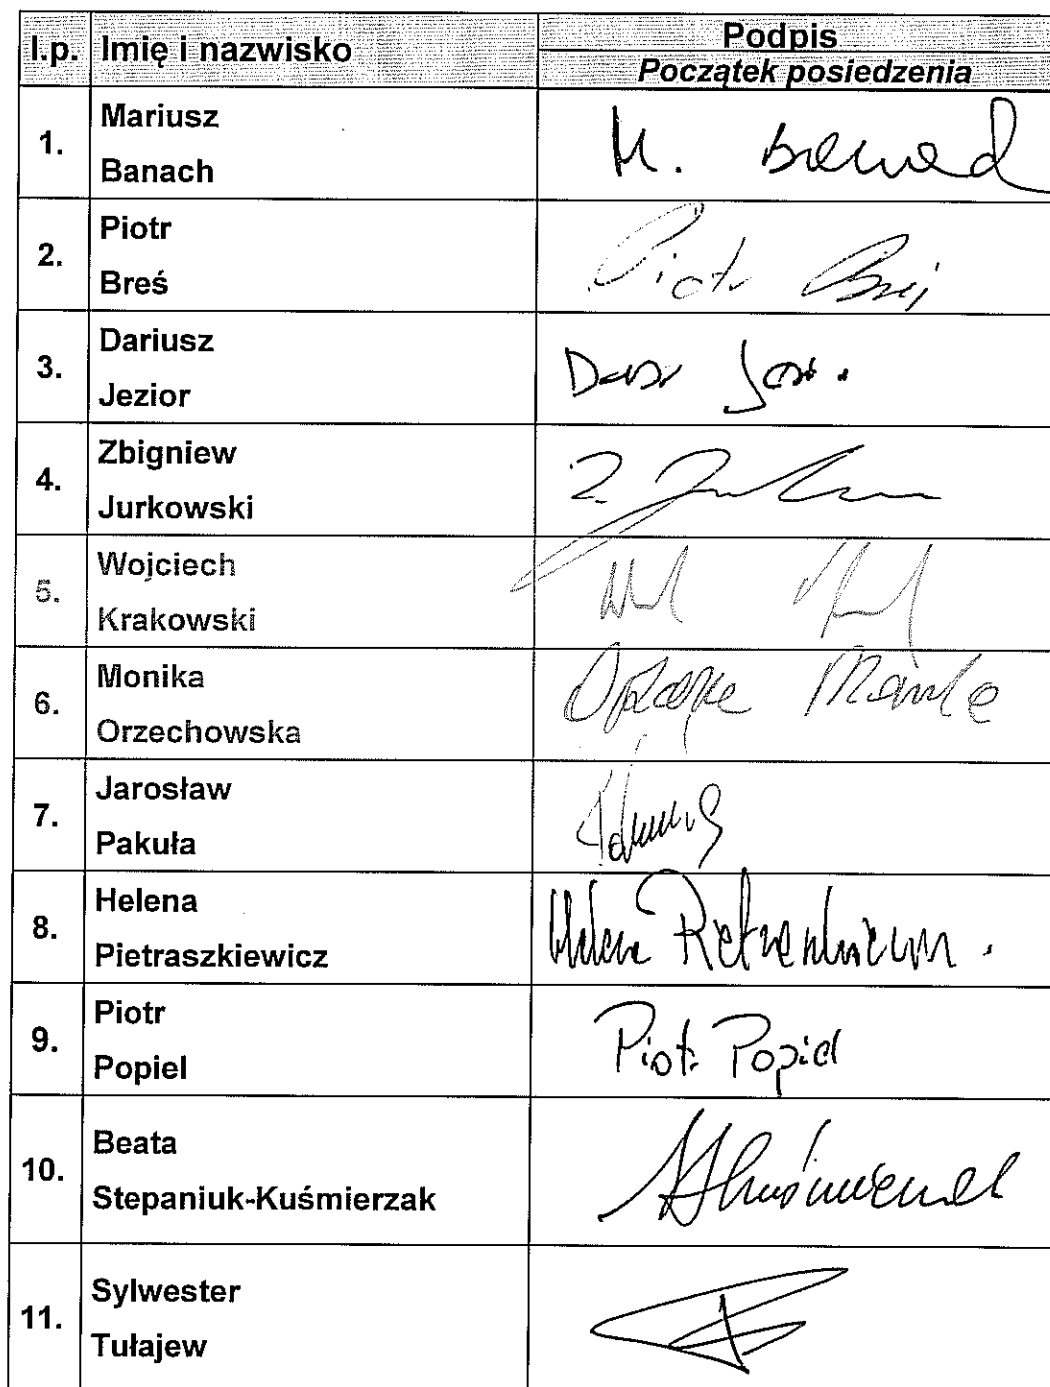 l.p. Imię i nazwisko Podpis
Początek posiedzenia
1. Mariusz
Banach
M. Banach
2. Piotr
Breś
Piotr Breś
3. Dariusz
Jezior
4. Zbigniew
Jurkowski
Z.
5. Wojciech
Krakowski
6. Monika
Orzechowska
7. Jarosław
Pakuła
8. Helena
Pietraszkiewicz
Helena Pietraszkiewicz
9. Piotr
Popiel
Piotr Popiel
10. Beata
Stepaniuk-Kuśmierzak
11. Sylwester
Tułajew